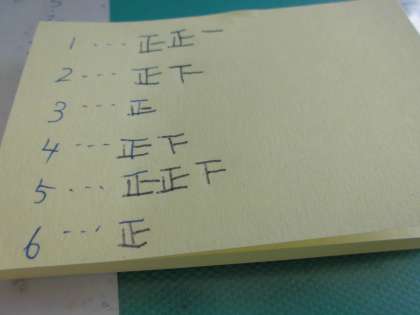 1 … 正正一
2 … 正下
3 … 正
4 … 正下
5 … 正正下
6 … 正